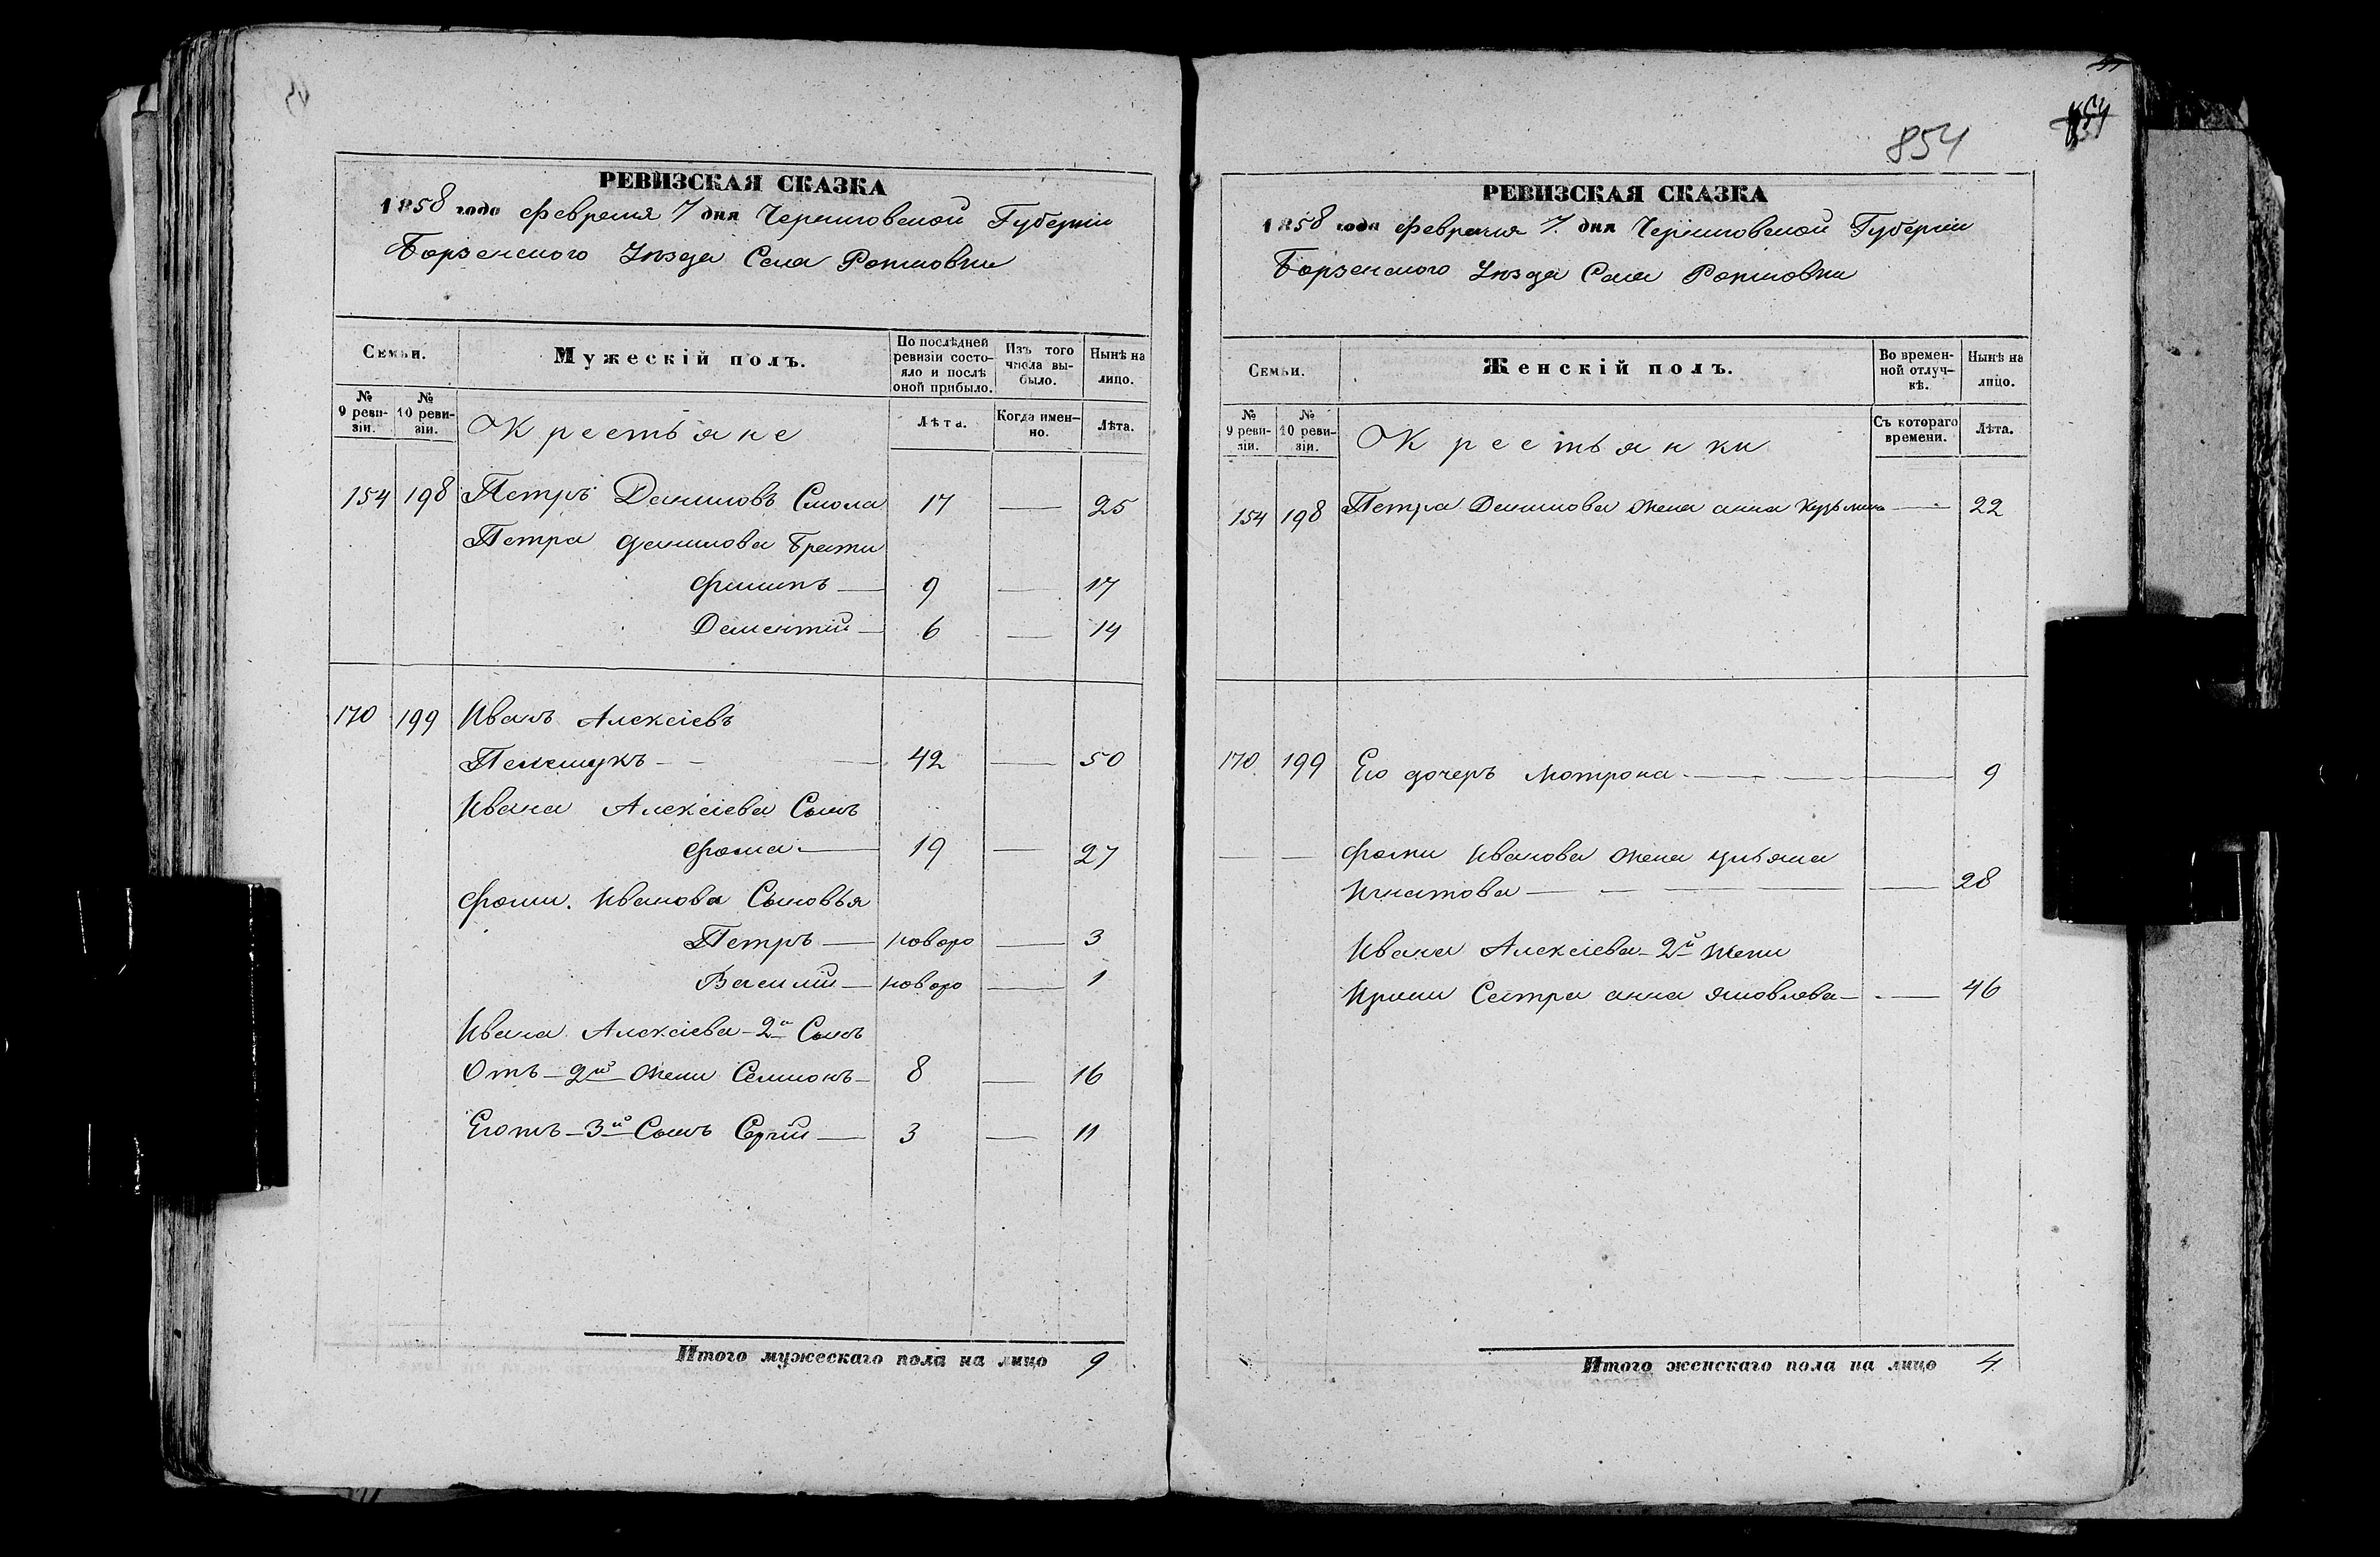 РЕВИЗСКАЯ СКАЗКА
1858 года Февраля 7 дня Черниговской Губерніи
Борзенского Уезда Села
Семьи.
Мужескій полъ.
По послѣдней ревизіи состояло и послѣ оной прибыло.
Изъ того числа выбыло.
Нынѣ на лицо.
№ 9 ревизіи.
№ 10 ревизіи.
Крестьяне
Лѣта.
Когда именно.
Лѣта.
154 198 Петръ Даниловъ Смола 17 — 25
Петра Данилова Брати
Филипъ — 9 — 17
Дементій — 6 — 14
170 199 Иванъ Алексіевъ
Пелешукъ — 42 — 50
Ивана Алексіева Сынъ
Фома — 19 — 27
Фоми Иванова Сыновья
Петръ — новоро — 3
Василій — новоро — 1
Ивана Алексіева 2й Сынъ
Отъ 2й жени Семионъ — 8 — 16
Егожъ 3й Сынъ Сергій — 3 — 11
Итого мужескаго пола на лицо 9
854
РЕВИЗСКАЯ СКАЗКА
1858 года Февраля 7 дня Черниговской Губерніи
Борзенского Уезда Села
Семьи.
Женскій полъ.
Во временной отлучкѣ.
Нынѣ на лицо.
№ 9 ревизіи.
№ 10 ревизіи.
Крестьянки
Съ котораго времени.
Лѣта.
154 198 Петра Данилова жена анна Кузьмина — 22
170 199 Его дочеръ Мотрона — 9
— — Фоми Иванова жена Ульяна
Игнатова — 28
Ивана Алексіева 2й жени
Ирини Сестра анна Яковлева — 46
Итого женскаго пола на лицо 4